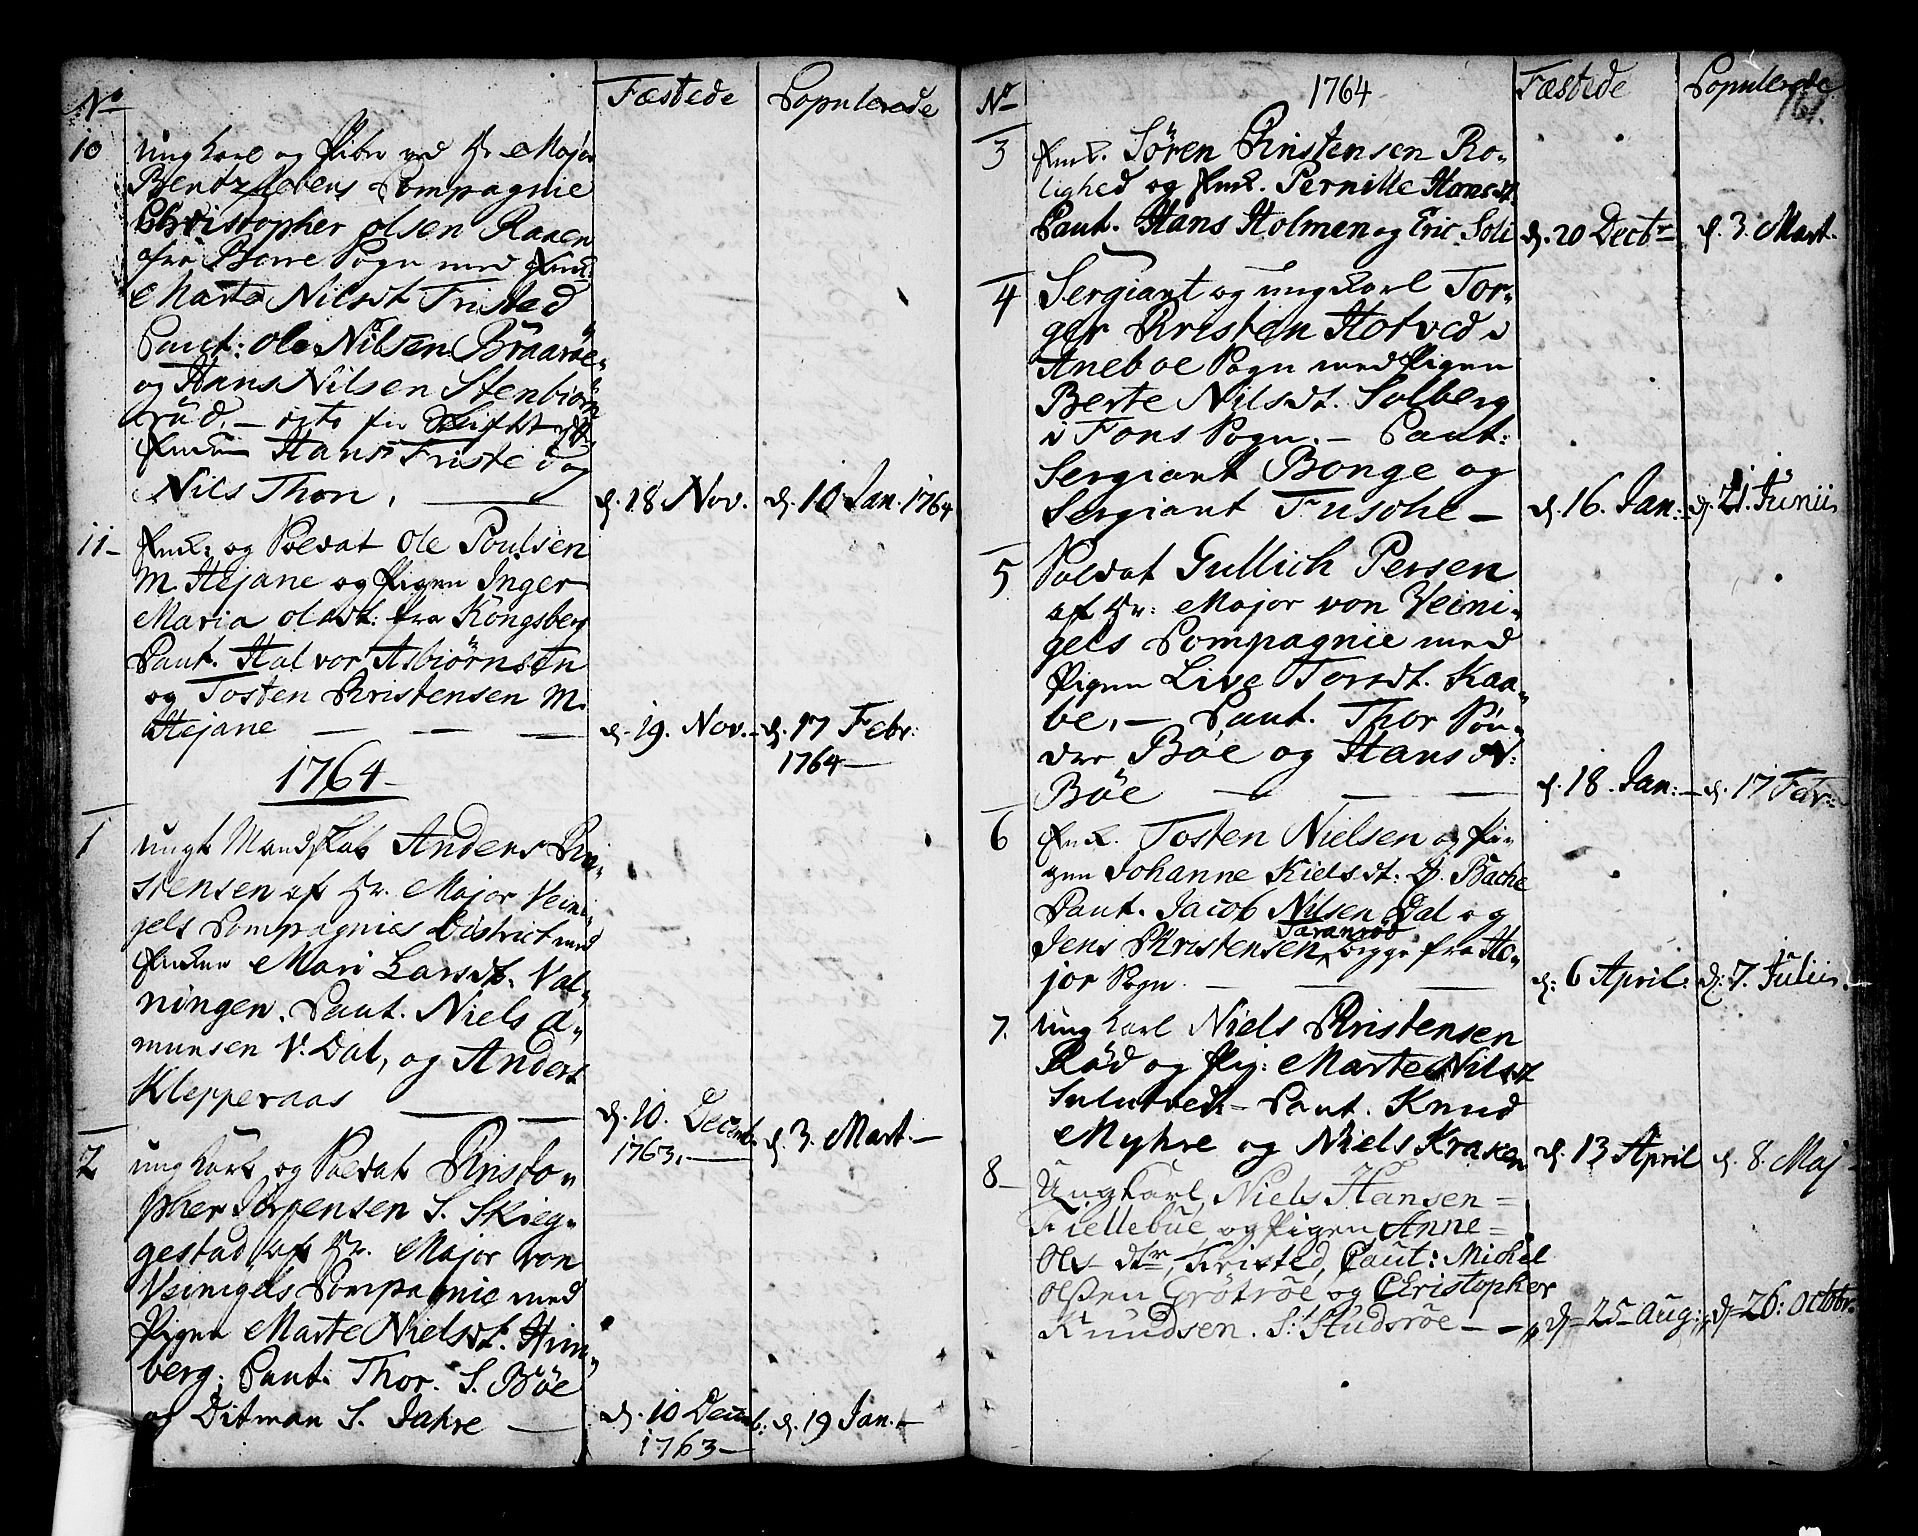 No
Fæstede
Copulerede
10
ung karl og Piber ved Hr Major
Bentzlebens Compagnie
Christopher Olsen Raaen
fra Borre Sogn med Enk:
Marte Nilsdt Fristed
Caut: Ole Nilsen Braarøe
og Hans Nilsen Stenbiørn
rüd. — Skifte
Hans Fristed og
Nils Thon.
d. 18 Nov.
d. 10 Jan. 1764
11
Enk: og Soldat Ole Poulsen
M. Hejane og Pigen Inger
Maria Olsdt: fra Kongsberg
Caut. Halvor Asbiørnsen
og Tosten Kristensen M.
Hejane
d. 19. Nov.
d. 17 Febr:
1764
1764
1
ungt Mandskab Anders Kri-
stensen af Hr. Major Veini-
gels Compagnies District med
Mari Larsdt. Val-
ningen. Caut. Niels A-
munsen V. Dal, og Anders
Klepperaas
d. 10. Decemb.
1763.
d. 3. Mart.
2
ung karl og Soldat Kristo-
pher Jørgensen S. Skieg-
gestad af Hr. Major von
Veinigels Compagnie med
Pigen Marte Nielsdt. Him-
berg. Caut. Thor. S. Bøe
og Ditman S. Jahre
d. 10 Decemb:
1763
d. 19 Jan.
No
1764
Fæstede
Copulerede
161.
3
Enk. Søren Kristensen Ro-
lighed og Enk. Pernille Hansdt.
Caut. Hans Holmen og Eric Soli
d. 20 Decbr
d. 3. Mart.
4
Sergiant og ung karl Tor-
ger Kristen Hotved i
Aneboe Sogn med Pigen
Berte Nilsdt. Solberg
i Fons Sogn. — Caut:
Sergiant Bonge og
Sergiant Fusche
d. 16. Jan:
d. 21. Junii
5
Soldat Gullich Persen
af Hr: Major von Veini-
gels Compagnie med
Pigen Live Torsdt. Kaa-
be. — Caut. Thor Søn-
dre Bøe og Hans N:
Bøe
d. 18. Jan:
d. 17 Febr:
6
Enk. Tosten Nielsen og Pi-
gen Johanne Kielsdt: Bache
Caut. Jacob Nilsen Dal og
Taranrød
Jens Kristensen begge fra Ho-
jor Sogn.
d: 6 April:
d: 7. Julii
7.
ung karl Niels Kristensen
Rød og Pig: Marte Nilsdt
Sulutvedt — Caut. Knud
Myhre og Niels Kraken
d. 13 April
d. 8. Maj
8
Ung Karl Niels Hansen
Kiellebue og Pigen Anne
Ols dtr, Fristed, Caut: Michel
Olssen Grøtrøe og Christopher
Knudsen. S: Studsrøe
d 25 Aug:
d 26: Octobr.